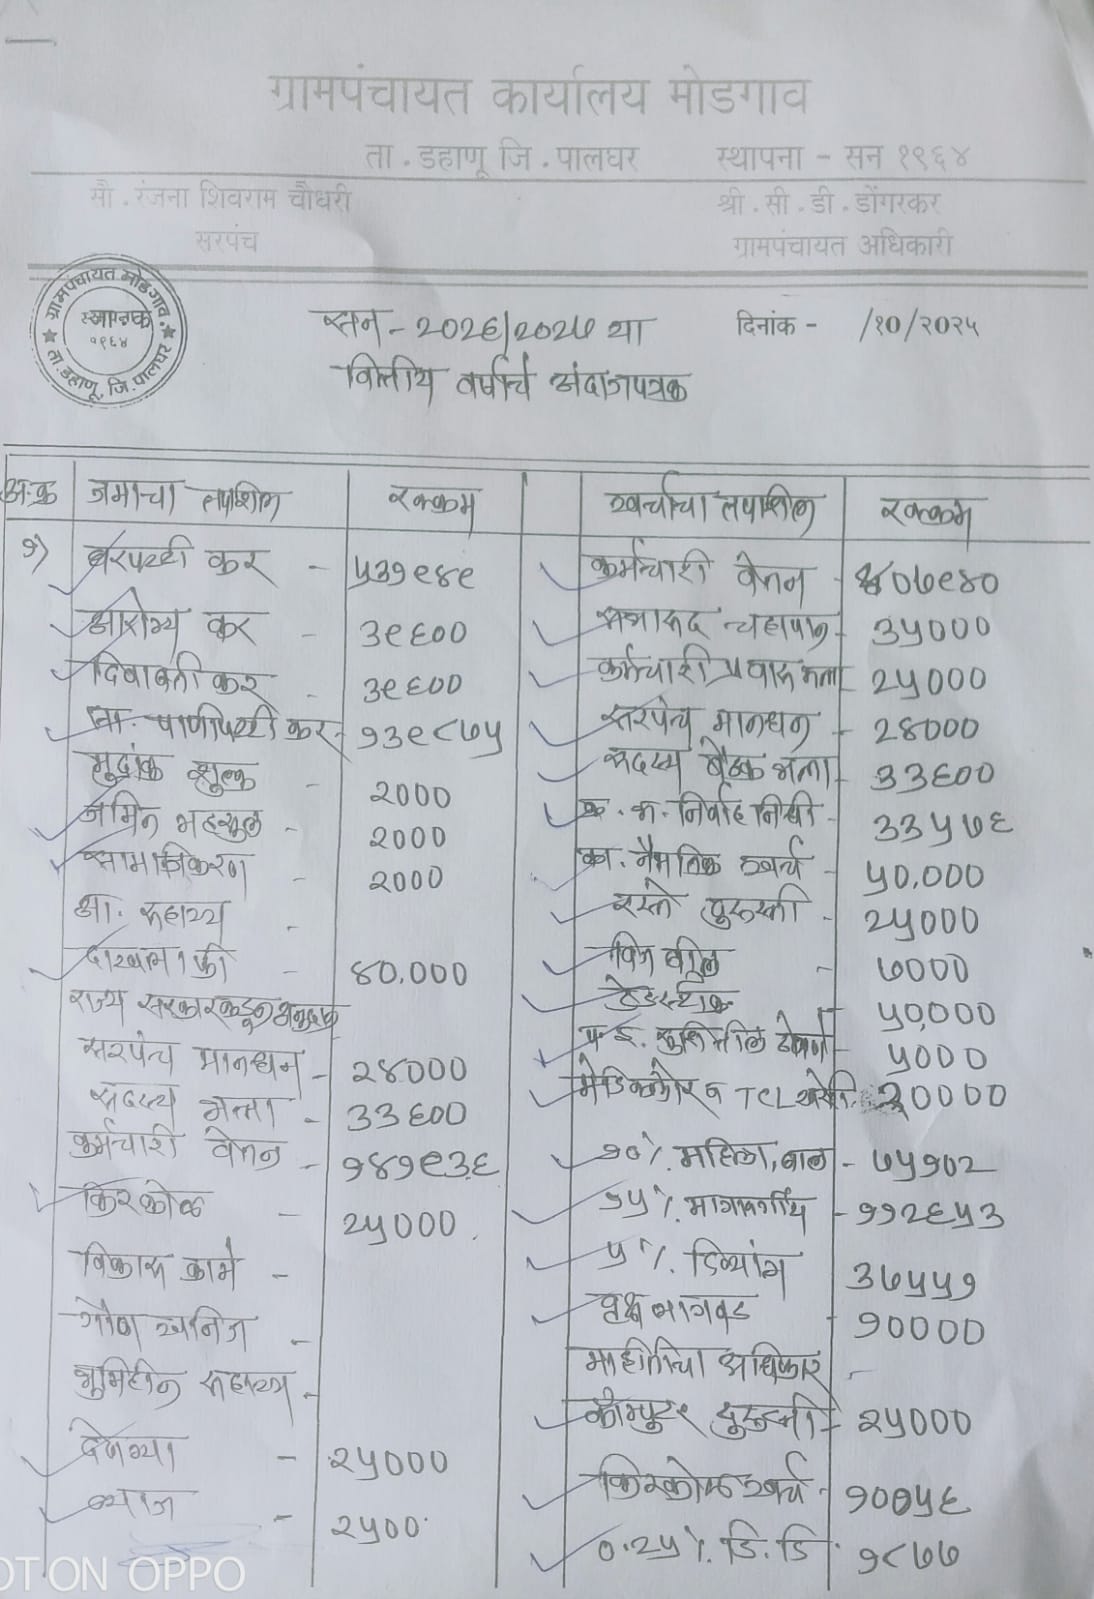 ग्रामपंचायत कार्यालय मोडगाव
ता. डहाणू जि. पालघर स्थापना - सन १९६४
सौ. रंजना शिवराम चौधरी श्री. सी. डी. डोंगरकर
सरपंच ग्रामपंचायत अधिकारी
ग्रामपंचायत मोडगाव. ता. डहाणू, जि. पालघर
स्थापना
१९६४
सन - २०२६/२०२७ या दिनांक - /१०/२०२५
वित्तीय वर्षाचे अंदाजपत्रक
अ.क्र जमाचा तपशिल रक्कम खर्चाचा तपशिल रक्कम
१) घरपट्टी कर - ५३१९४९ कर्मचारी वेतन - ४०७९४०
आरोग्य कर - ३९६०० सभासद चहापान - ३५०००
दिवाबत्ती कर - ३९६०० कर्मचारी प्रवास भत्ता - २५०००
खा. पाणीपट्टी कर - १३९८७५ सरपंच मानधन - २४०००
मुद्रांक शुल्क - २००० सदस्य बैठक भत्ता - ३३६००
जमिन महसुल - २००० क. भ. निर्वाह निधी - ३३५७६
सामाकीकरण - २००० का. नैमतिक खर्च - ५०,०००
आ. सहाय्य - रस्ते दुरुस्ती - २५०००
दाखला फी - ४०,००० विज बील - ७०००
राज्य सरकारकडून अनुदान डेडस्टॉक ५०,०००
सरपंच मानधन - २४००० सुस्थितीत ठेवणे - ५०००
सदस्य भत्ता - ३३६०० मेडिक्लोर व TCL खरेदी २००००
कर्मचारी वेतन - १४१९३६ १०% महिला, बाल - ७५१०२
किरकोळ - २५००० १५% मागासवर्गीय - ११२६५३
विकास कामे - ५% दिव्यांग ३७५५१
गौण खनिज - वृक्ष लागवड - १००००
भुमिहीन सहाय्य - माहितीचा अधिकार -
देणग्या - २५००० कॉम्पुटर दुरुस्ती - २५०००
व्याज - २५०० किरकोळ खर्च - १००५६
०.२५% डि. डि - १८७७
SHOT ON OPPO